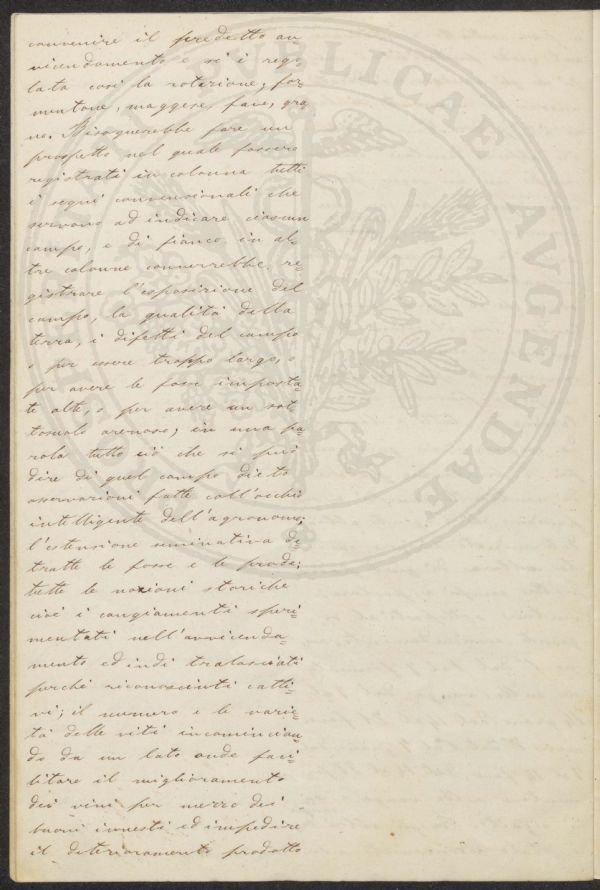 convenire il predetto av
vicendamento e si è rego=
lata così la rotazione; for=
mentone, maggese, fave, gra
no. Bisognerebbe fare un
prospetto nel quale fossero
registrati in colonna tutti
i segni convenzionali che
servono ad indicare ciascun
campo, e di fianco in al=
tre colonne converrebbe re=
gistrare l'esposizione del
campo, la qualità della
terra, i difetti del campo
o per essere troppo largo, o
per avere le fosse imposta=
te alte, o per avere un sot
tosuolo arenoso; in una pa=
rola tutto ciò che si può
dire di quel campo dietro
osservazioni fatte coll'occhio
intelligente dell'agronomo;
l'estensione seminativa de=
tratte le fosse e le prode;
tutte le nozioni storiche
cioè i cangiamenti speri=
mentati nell'avvicenda=
mento ed indi tralasciati
perchè riconosciuti catti=
vi; il numero e le varie=
tà delle viti incomincian=
do da un lato onde faci=
litare il miglioramento
dei vini per mezzo dei
buoni innesti ed impedire
il deterioramento prodotto
PUBLICAE
AVGENDAE